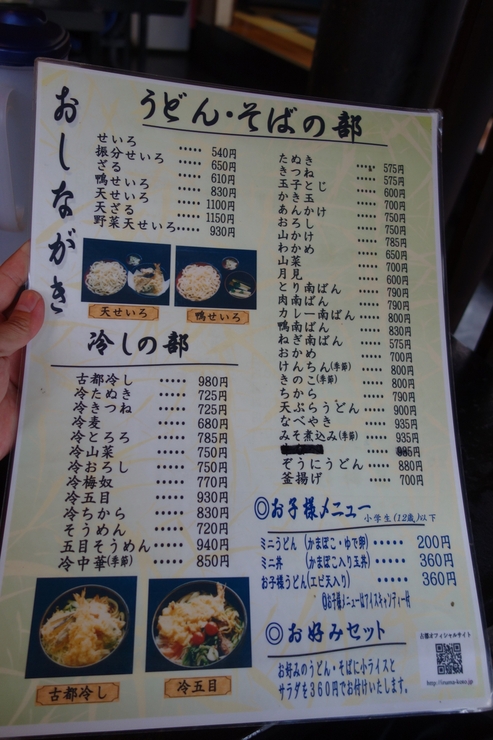 おしながき
うどん・そばの部
せいろ ····· 540円
振分せいろ ····· 650円
ざる ····· 610円
鴨せいろ ····· 830円
天せいろ ····· 1100円
天ざる ····· 1150円
野菜天せいろ ····· 930円
天せいろ
鴨せいろ
たぬき ····· 575円
きつね ····· 575円
玉子とじ ····· 600円
かき玉 ····· 700円
あんかけ ····· 750円
おろし ····· 750円
山かけ ····· 785円
わかめ ····· 650円
山菜 ····· 700円
月見 ····· 600円
とり南ばん ····· 790円
肉南ばん ····· 790円
カレー南ばん ····· 800円
鴨南ばん ····· 830円
ねぎ南ばん ····· 575円
おかめ ····· 700円
けんちん(季節) ····· 800円
きのこ(季節) ····· 800円
ちから ····· 790円
天ぷらうどん ····· 900円
なべやき ····· 935円
みそ煮込み(季節) ····· 935円
ぞうにうどん ····· 880円
釜揚げ ····· 700円
冷しの部
古都冷し ····· 980円
冷たぬき ····· 725円
冷きつね ····· 725円
冷麦 ····· 680円
冷とろろ ····· 785円
冷山菜 ····· 750円
冷おろし ····· 750円
冷梅奴 ····· 770円
冷五目 ····· 930円
冷ちから ····· 830円
そうめん ····· 720円
五目そうめん ····· 940円
冷中華(季節) ····· 850円
古都冷し
冷五目
◎お子様メニュー 小学生(12歳)以下
ミニうどん (かまぼこ・ゆで卵) ····· 200円
ミニ丼 (かまぼこ入り玉丼) ····· 360円
お子様うどん(エビ天入り) ····· 360円
お子様メニューはアイスキャンディー付
◎お好みセット
お好みのうどん・そばに小ライスと
サラダを360円でお付けいたします。
古都オフィシャルサイト